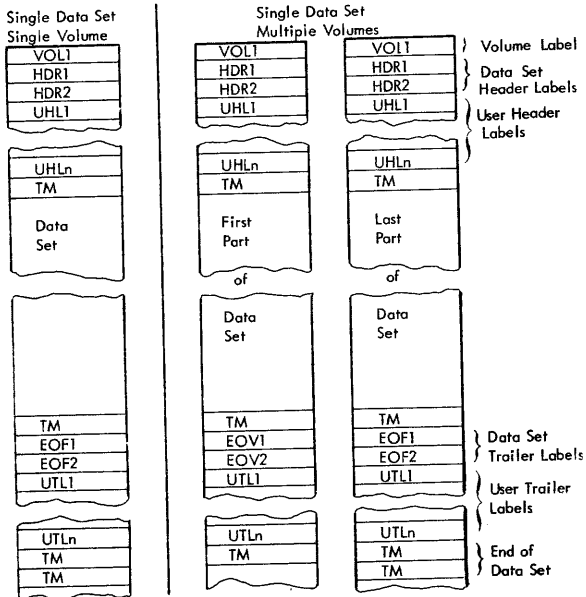 Single Data Set
Single Volume
VOL1
HDR1
HDR2
UHL1
UHLn
TM
Data
Set
TM
EOF1
EOF2
UTL1
UTLn
TM
TM
Single Data Set
Multiple Volumes
VOL1
HDR1
HDR2
UHL1
UHLn
TM
First
Part
of
Data
Set
TM
EOV1
EOV2
UTL1
UTLn
TM
VOL1
HDR1
HDR2
UHL1
UHLn
TM
Last
Part
of
Data
Set
TM
EOF1
EOF2
UTL1
UTLn
TM
TM
Volume Label
Data Set
Header Labels
User Header
Labels
Data Set
Trailer Labels
User Trailer
Labels
End of
Data Set